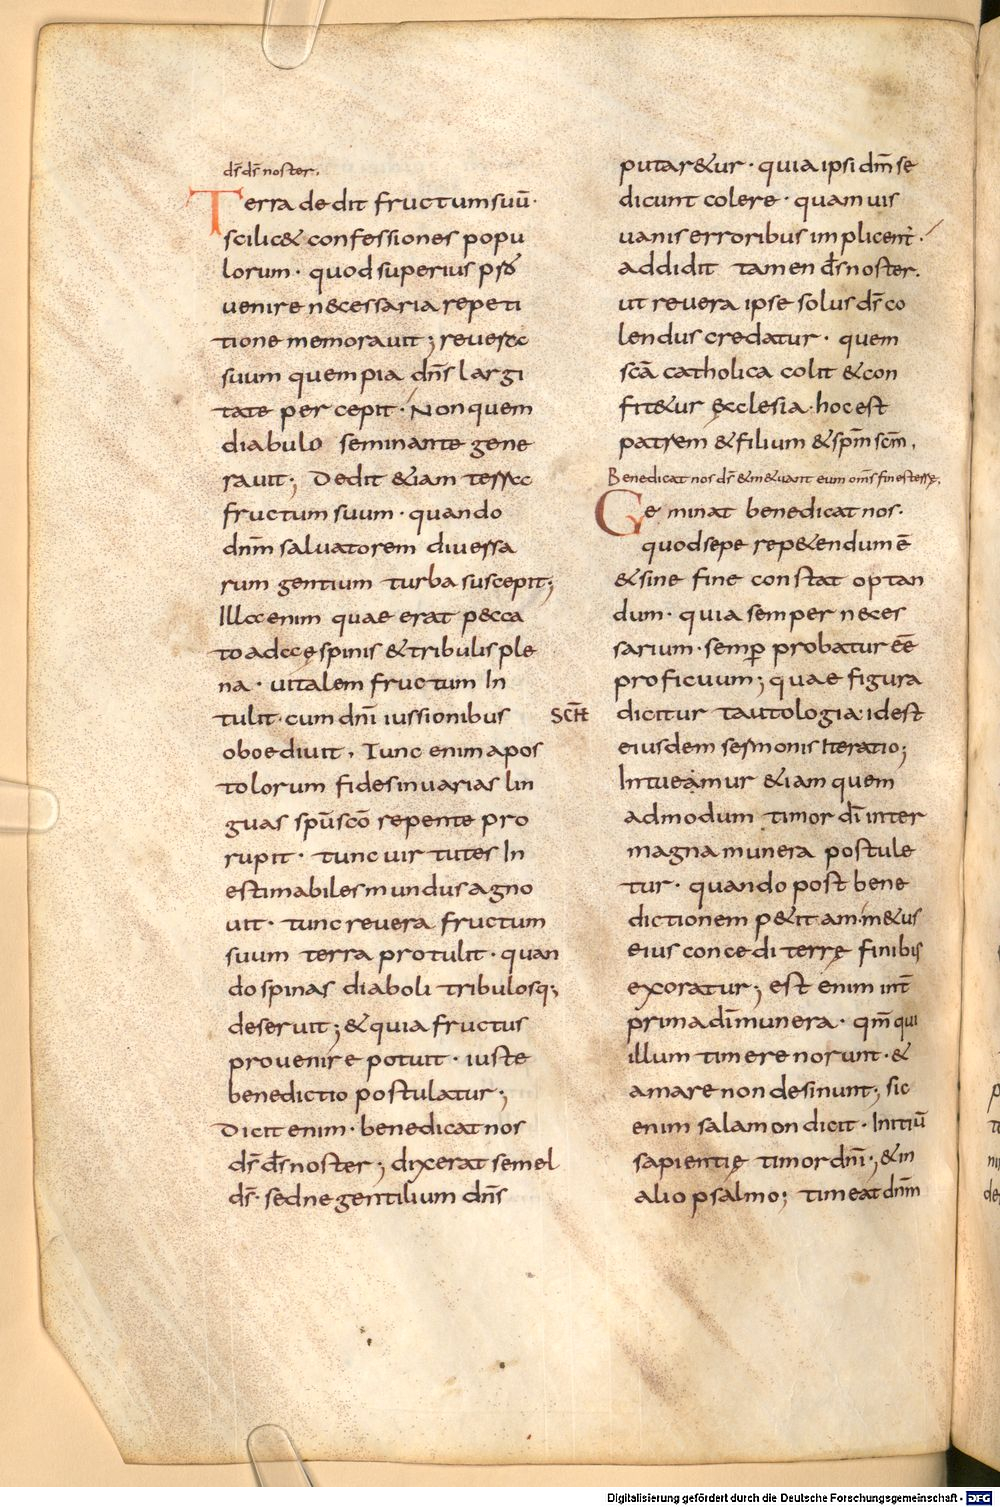 dſ dſ noster.
Terra dedit fructum suū·
scilic& confessiones popu
lorum· quod superius p̄
uenire necessaria repeti
tione memorauit; reuera
suum quem pia dn̄s largi
tate percepit· Non quem
diabulo seminante gene
rauit; Dedit &iam terra
fructum suum· quando
dn̄m saluatorem diuersa
rum gentium turba suscepit;
Illa enim quae erat pecca
to adae spinis & tribulis ple
na· uitalem fructum In
tulit· cum dn̄i iussionibus
oboediuit, Tunc enim apos
tolorum fides in uarias lin
guas spū scō repente pro
rupit· tunc uirtutes In
estimabiles mundus agno
uit· tunc reuera fructum
suum terra protulit· quan
do spinas diaboli tribulosq;
deseruit; & quia fructus
prouenire potuit· iuste
benedictio postulatur;
Dicit enim· benedicat nos
d̄s d̄s noster; dixerat semel
d̄s· sed ne gentilium dn̄s
putar&ur· quia ipsi dm̄ se
dicunt colere· quamuis
uanis erroribus implicent·
addidit tamen d̄s noster.
ut reuera ipse solus d̄s co
lendus credatur· quem
scā catholica colit & con
fit&ur ęcclesia· hoc est
patrem & filium & spm̄ scm̄,
Benedicat nos d̄s & m&uant eum om̄s fines terrę,
Geminat benedicat nos·
quod sepe rep&endum ē
& sine fine constat optan
dum· quia semper neces
sarium· semp̄ probatur eē
proficuum; quae figura
dicitur tautologia· idest
eiusdem sermonis Iteratio;
Intueamur &iam quem
admodum timor dī inter
magna munera postule
tur· quando post bene
dictionem p&itam· m&us
eius concedi terrę finibus
exoratur; est enim int̄
prima dī munera· qm̄ qui
illum timere norunt· &
amare non desinunt; sic
enim salamon dicit· Initiū
sapientię timor dn̄i; & in
alio psalmo; timeat dn̄m